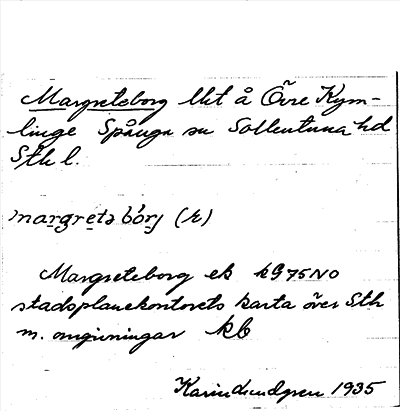 Margreteborg lht å Övre Kym-
linge Spånga sn Sollentuna hd
Sth l.
margretə bórj (k)
Margreteborg ek kG75NO
stadsplanekontorets karta över Sth
m. omgivningar kb
Karin Lundgren 1935